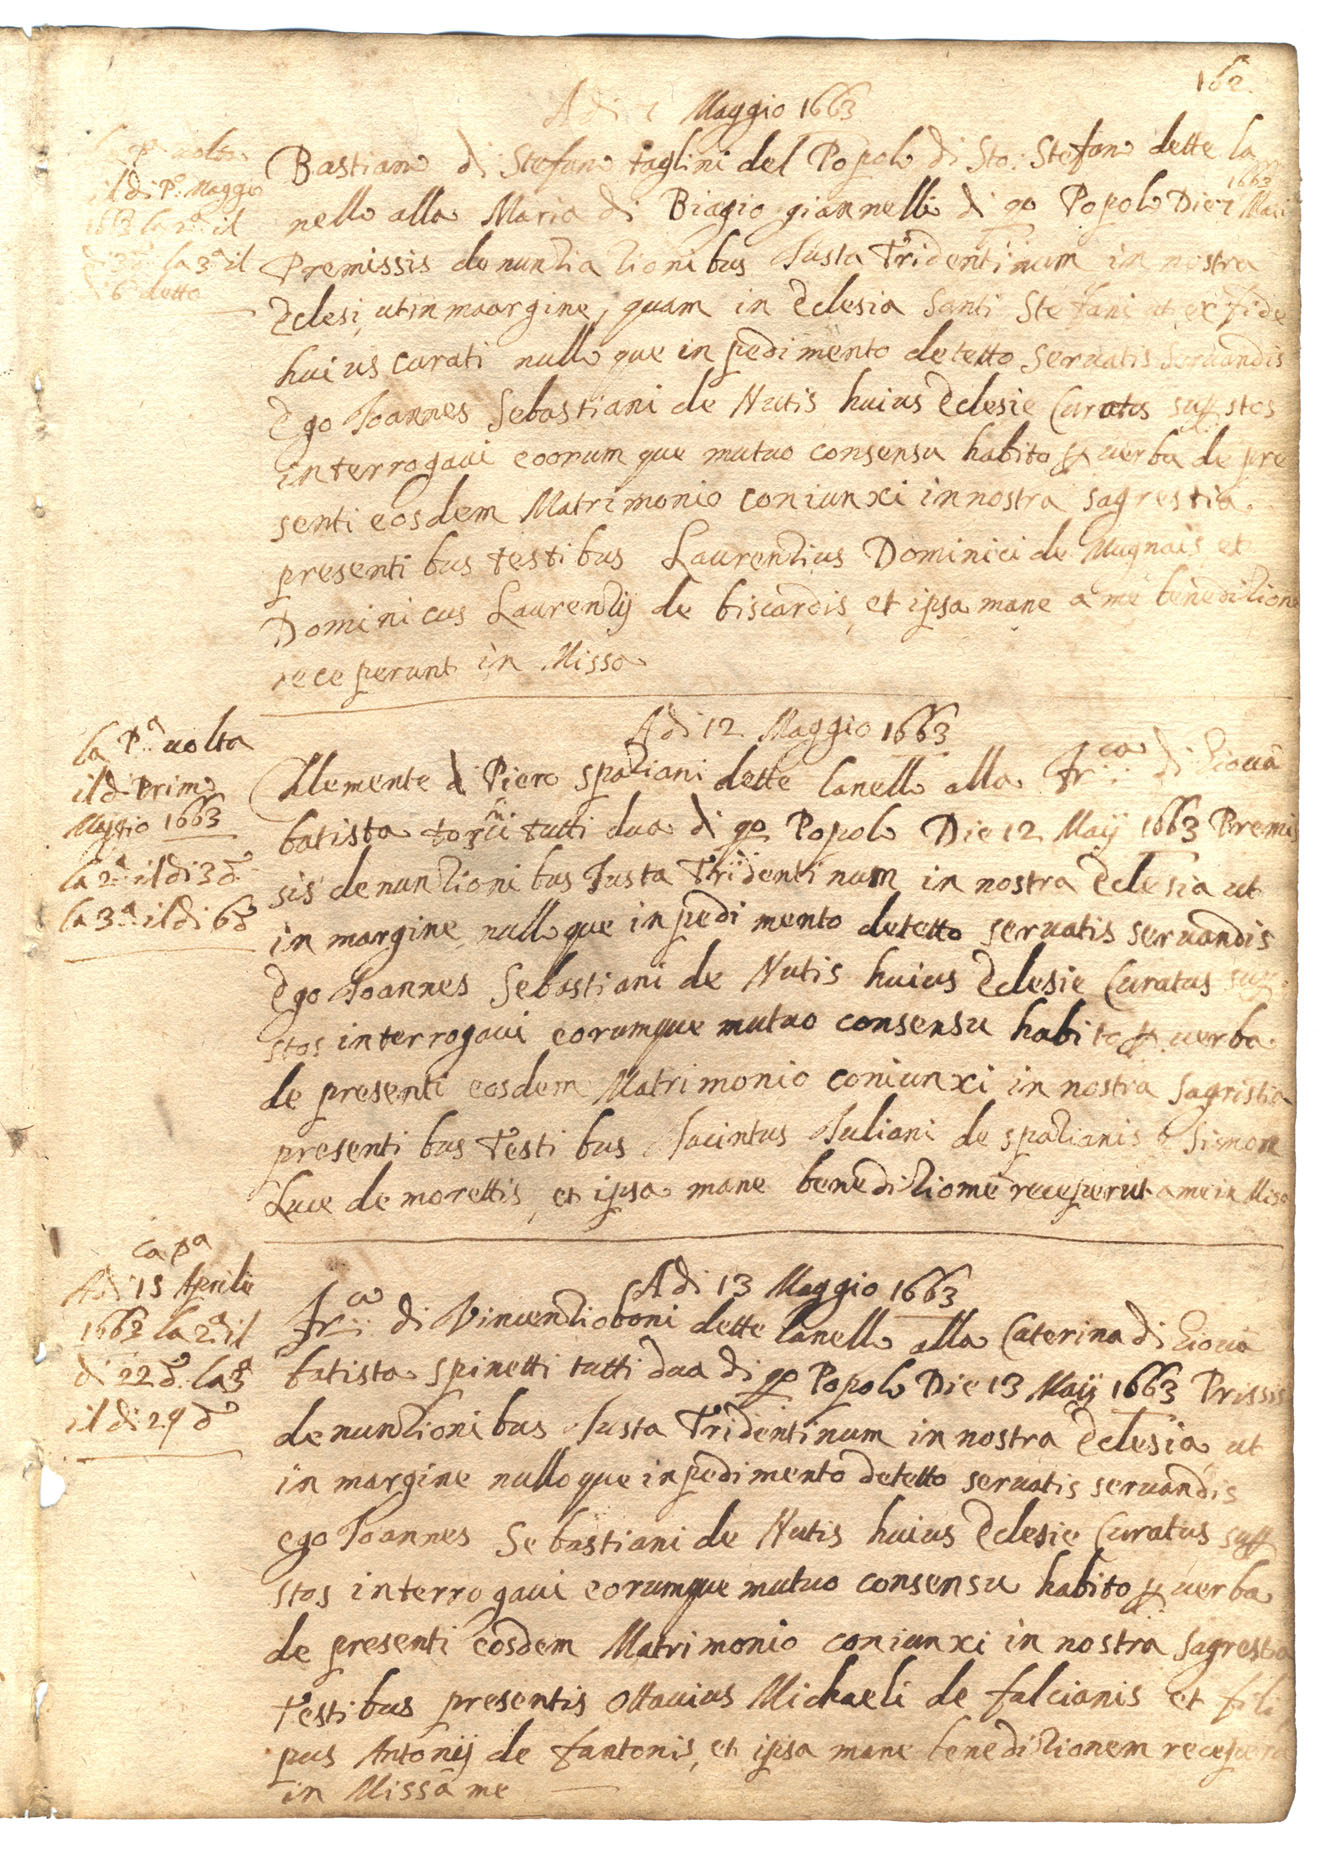 162
Adi Maggio 1663
la Pª uolta
il di Pº Maggio
1663 la 2ª il
di 3 la 3ª il
di 6 detto
Bastiano di Stefano taglini del Popolo di Sto: Stefano dette la
nello alla Maria di Biagio giannelli di qo Popolo Die Maii
1663
Premissis denuntiationibus Iusta Tridentinum in nostra
Eclesi, ut in maargine, quam in Eclesia Santi Stefani ut ex fide
huius curati nulloque inpedimento detetto seruatis seruandis
Ego Ioannes Sebastiani de Nutis huius Eclesie Curatus supstos
interrogaui eoorumque mutuo consensu habito p uerba de pre
senti eosdem Matrimonio coniunxi in nostra sagrestia
presentibus testibus Laurentius Dominici de Mugnais, et
Dominicus Laurentij de biscardis, et ipsa mane a me beneditione
receperunt in Missa
Adi 12 Maggio 1663
la Pª uolta
il di Primo
Maggio 1663
la 2ª il di 3 d
la 3ª il di 6 d
Clemente di Piero spatiani dette lanello alla Frca di Giouā
batista tutti dua di qo Popolo Die 12 Maij 1663 Premi
sis denuntionibus Iusta Tridentinum in nostra Eclesia ut
in margine nulloque inpedimento detetto seruatis seruandis
Ego Ioannes Sebastiani de Nutis huius Eclesie Curatus sup
stos interrogaui eorumque mutuo consensu habito p uerba
de presenti eosdem Matrimonio coniunxi in nostra sagristia
presentibus Testibus Iacintus Iuliani de spatianis e Simon
Luce de morettis, et ipsa mane beneditiomē receperut a me in Missa
ca pa
Adi 15 Aprile
1663 la 2ª il
di 22 d. la 3ª
il di 29 d
Adi 13 Maggio 1663
Frca di Vincentio boni dette lanello alla Caterina di Giouā
batista spinetti tutti dua di qo Popolo Die 13 Maij 1663 Prissis
denuntionibus Iusta Tridentinum in nostra Eclesia ut
in margine nulloque inpedimento detetto seruatis seruandis
ego Ioannes Sebastiani de Nutis huius Eclesie Curatus sup
stos interrogaui eorumque mutuo consensu habito p uerba
de presenti eosdem Matrimonio coniunxi in nostra sagrestia
Testibus presentis Ottauius Michaeli de falcianis et fili
pus Antonij de fantonis, et ipsa mane beneditionem recepera
in Missā me